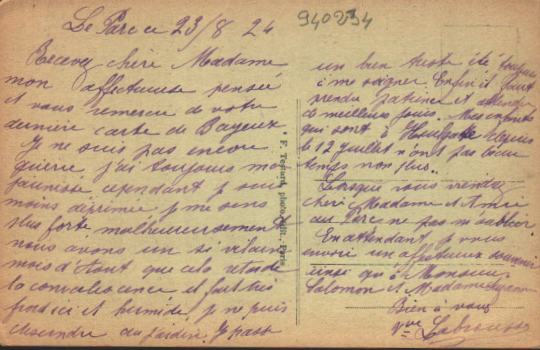 Le Parc ce 23/8 24
940294
Recevez chère Madame
mon affectueuse pensée
et vous remercie de votre
dernière carte de Bayeux
Je ne suis pas encore
guerrie, j'ai toujours ma
jaunisse cependant je suis
moins déprimée je me sens
plus forte, malheureusement
nous avons un si vilain
mois d'Août que cela retarde
la convalescence il fait très
froid ici et humide, je ne puis
descendre au jardin. Je passe
un bien triste été toujours
à me soigner. Enfin il faut
prendre patience et attendre
de meilleurs jours. Mes enfants
qui sont à Houlgate depuis
le 12 juillet n'ont pas beau
temps non plus.
Lorsque vous viendrez
chère Madame et Amie
au Parc ne pas m'oublier.
En attendant je vous
envoie un affectueux souvenir
ainsi qu'à Monsieur
Salomon et Madame
Bien à vous
Vve Labrousse
F. Tessard, photo-édit., Paris